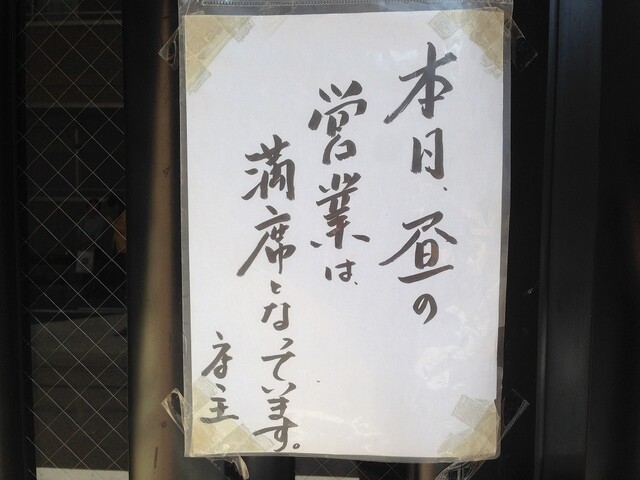 本日、昼の
営業は、
満席となっています。
店主